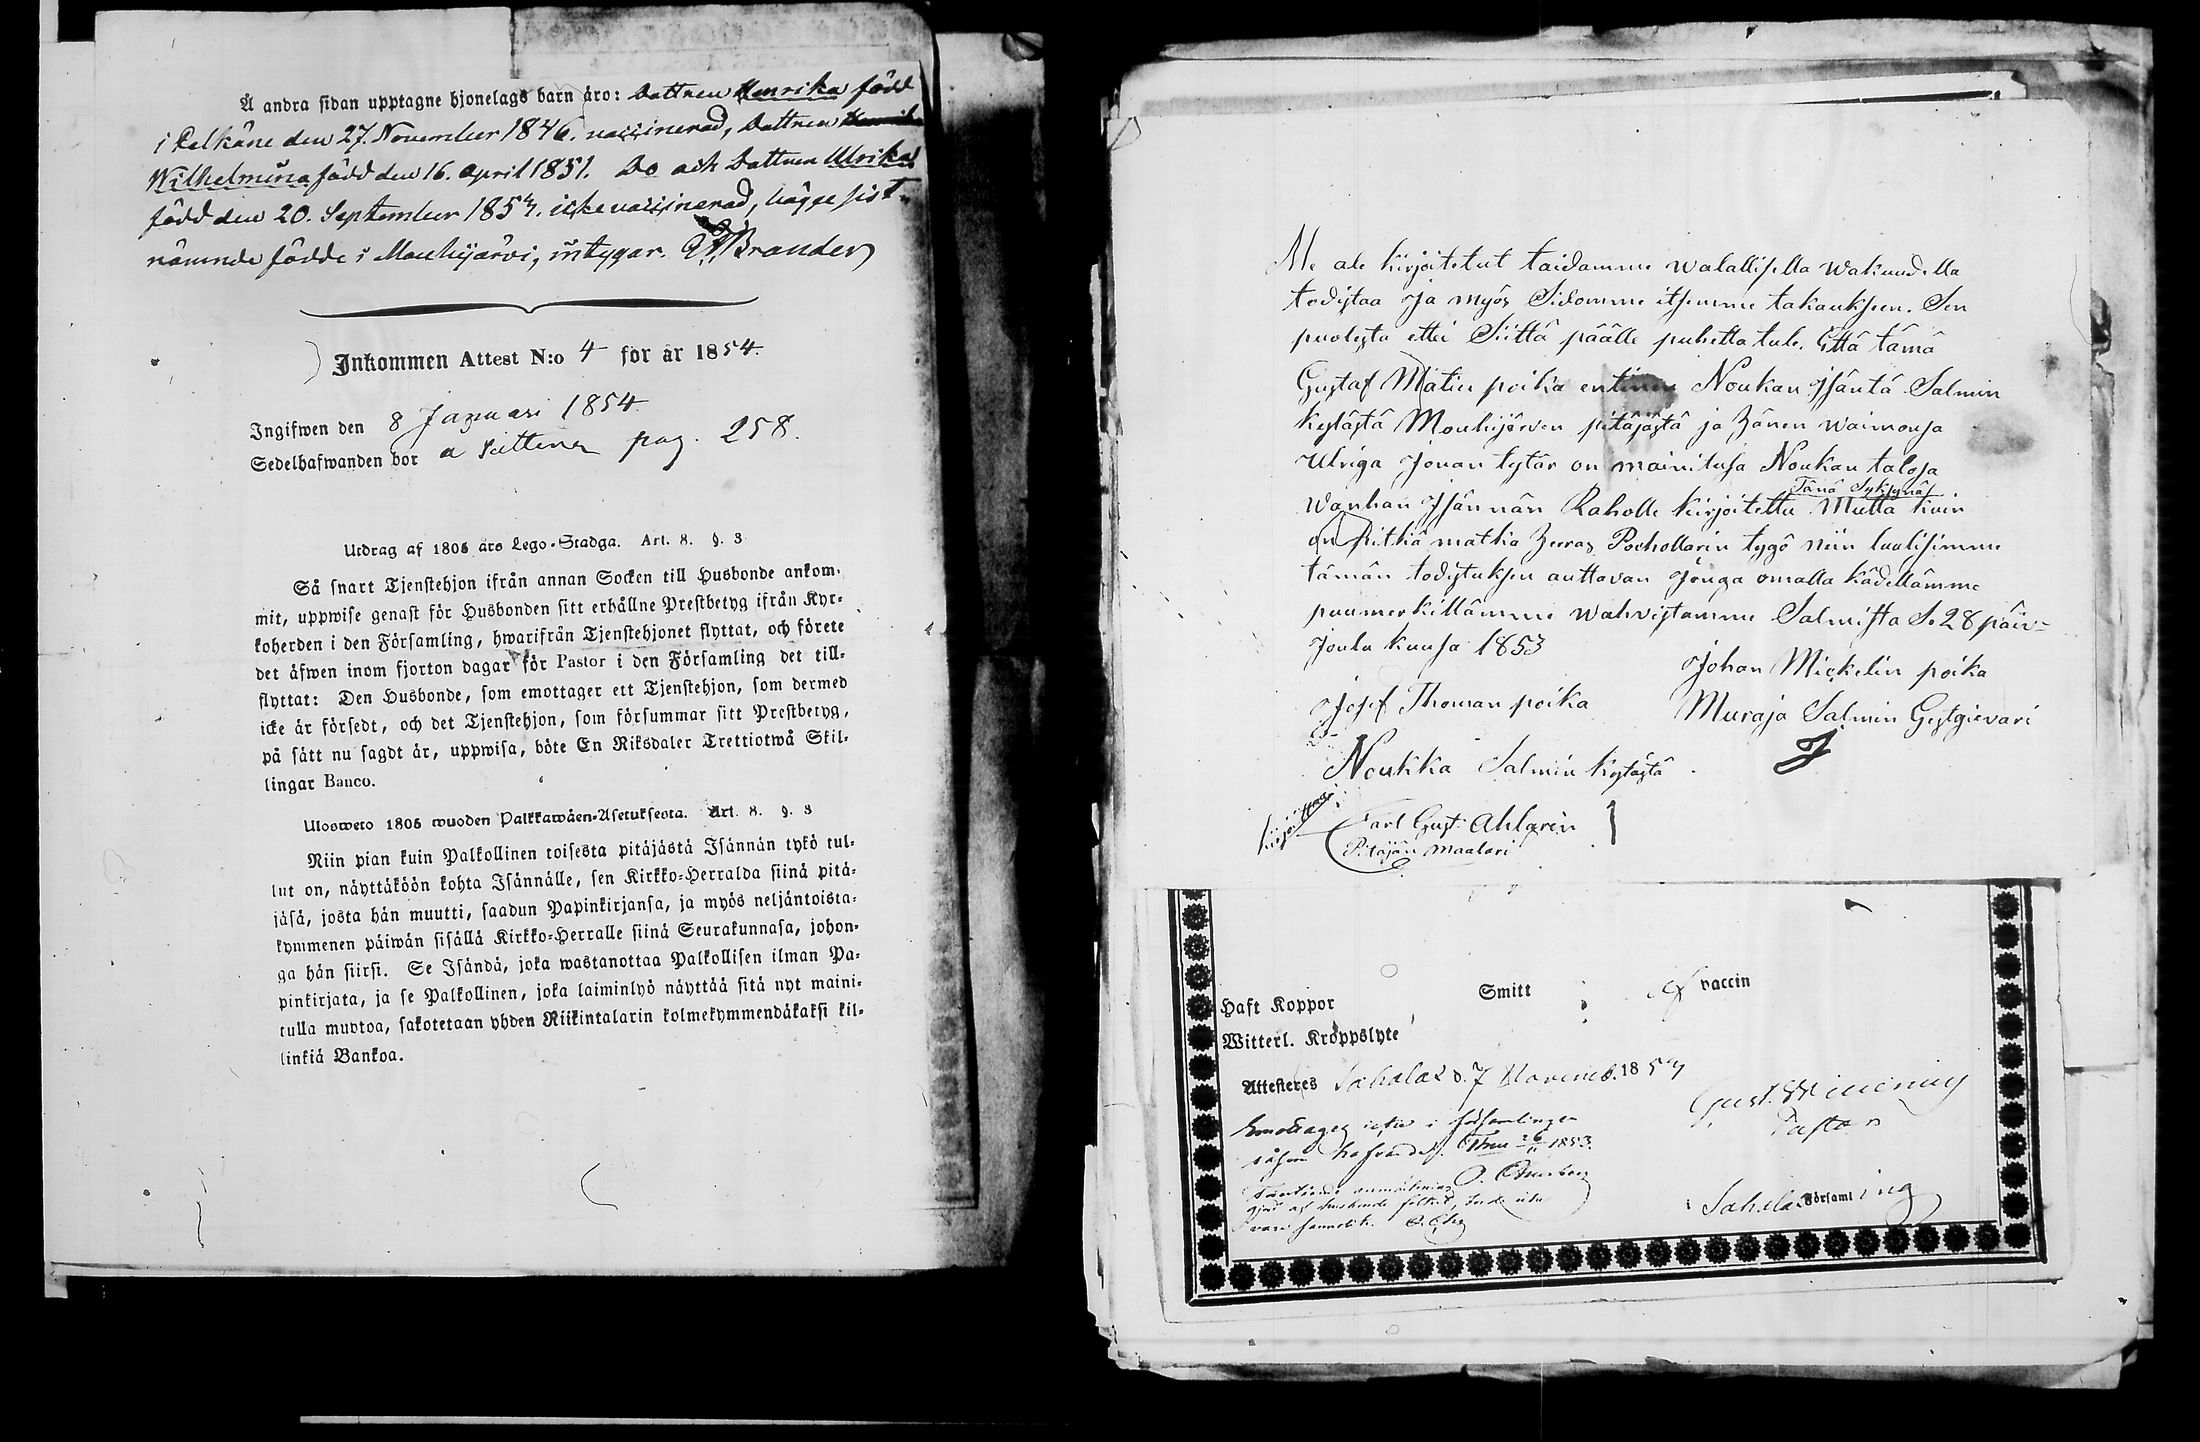 Å andra sidan upptagne hjonelags barn äro: Dottren Henrika född
i Pelkäne den 27. November 1846. vaccinerad, Dottren
Wilhelmina född den 16. April 1851. Do och Dottren Ulrika
född den 20. September 1853. icke vaccinerad, bägge sist-
nämnde födde i Mouhijärvi, intygar. Brander
Inkommen Attest N:o 4 för år 1854.
Ingifwen den 8 Januari 1854.
Sedelhafwanden bor å pag. 258.
Utdrag af 1805 års Lego-Stadga. Art. 8. §. 3
Så snart Tjenstehjon ifrån annan Socken till Husbonde ankom-
mit, uppwise genast för Husbonden sitt erhållne Prestbetyg ifrån Kyr-
koherden i den Församling, hwarifrån Tjenstehjonet flyttat, och förete
det äfwen inom fjorton dagar för Pastor i den Församling det till-
flyttat: Den Husbonde, som emottager ett Tjenstehjon, som dermed
icke är försedt, och det Tjenstehjon, som försummar sitt Prestbetyg,
på sätt nu sagdt är, uppwisa, böte En Riksdaler Trettiotwå Skil-
lingar Banco.
Ulosweto 1805 wuoden Palkkawäen-Asetuksesta. Art. 8. §. 3
Niin pian kuin Palkollinen toisesta pitäjästä Isännän tykö tul-
lut on, näyttäköön kohta Isännälle, sen Kirkko-Herralda siinä pitä-
jäsä, josta hän muutti, saadun Papinkirjansa, ja myös neljäntoista-
kymmenen päiwän sisällä Kirkko-Herralle siinä Seurakunnasa, johon-
ga hän siirsi. Se Isändä, joka wastanottaa Palkollisen ilman Pa-
pinkirjata, ja se Palkollinen, joka laiminlyö näyttää sitä nyt maini-
tulla muotoa, sakotetaan yhden Riikintalarin kolmekymmendäkaksi kil-
linkiä Bankoa.
Me ale kirjoitetut taidamme walallisella wakuudella
todistaa Ja myös Sidomme itsemme takauksen. Sen
puolesta ettei Siittä päälle puhetta tule. Että tämä
Gustaf Matin poika entinen Noukan Isäntä Salmin
kylästä Mouhijärven pitäjästä ja hänen waimonsa
Ulriga Jonan tytär on mainitusa Noukan talosa
Tänä Syksynä
wanhan Isännän Raholle kirjoitettu Mutta kuin
on pitkä matka herras Prohollarin tygö niin luulisimme
tämän todistuksen auttavan Jonga omalla kädellämme
puumerkillämme wahvistamme Salmista Se 28 päiv-
Joulu kuusa 1853
Johan Mickelin poika
Josef Thoman poika
Muraja Salmin Gestgievari
Noukka Salmin kylästä
Carl Gust. Ahlgrén
Pitäjän Maalari
Haft Koppor Smitt vaccin
Witterl. Kroppslyte
Attesteres Sahalax d. 7 Novemb. 1853
Gust.
Pastor
i församlingen
1853.
Sahalax Församling